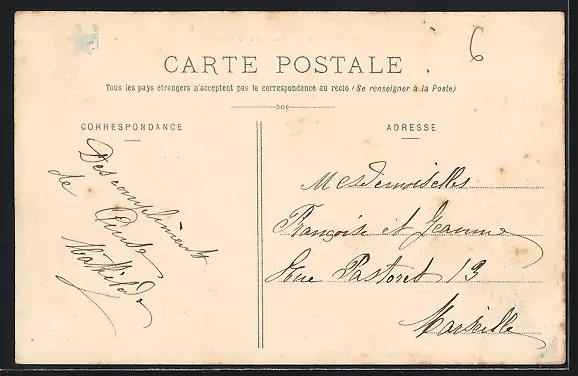 6
CARTE POSTALE
Tous les pays étrangers n'acceptent pas la correspondance au recto (Se renseigner à la Poste)
CORRESPONDANCE
Des compliments
de
Mathilde
ADRESSE
Mesdemoiselles
Françoise et Jeanne
Rue Pastoret 13
Marseille